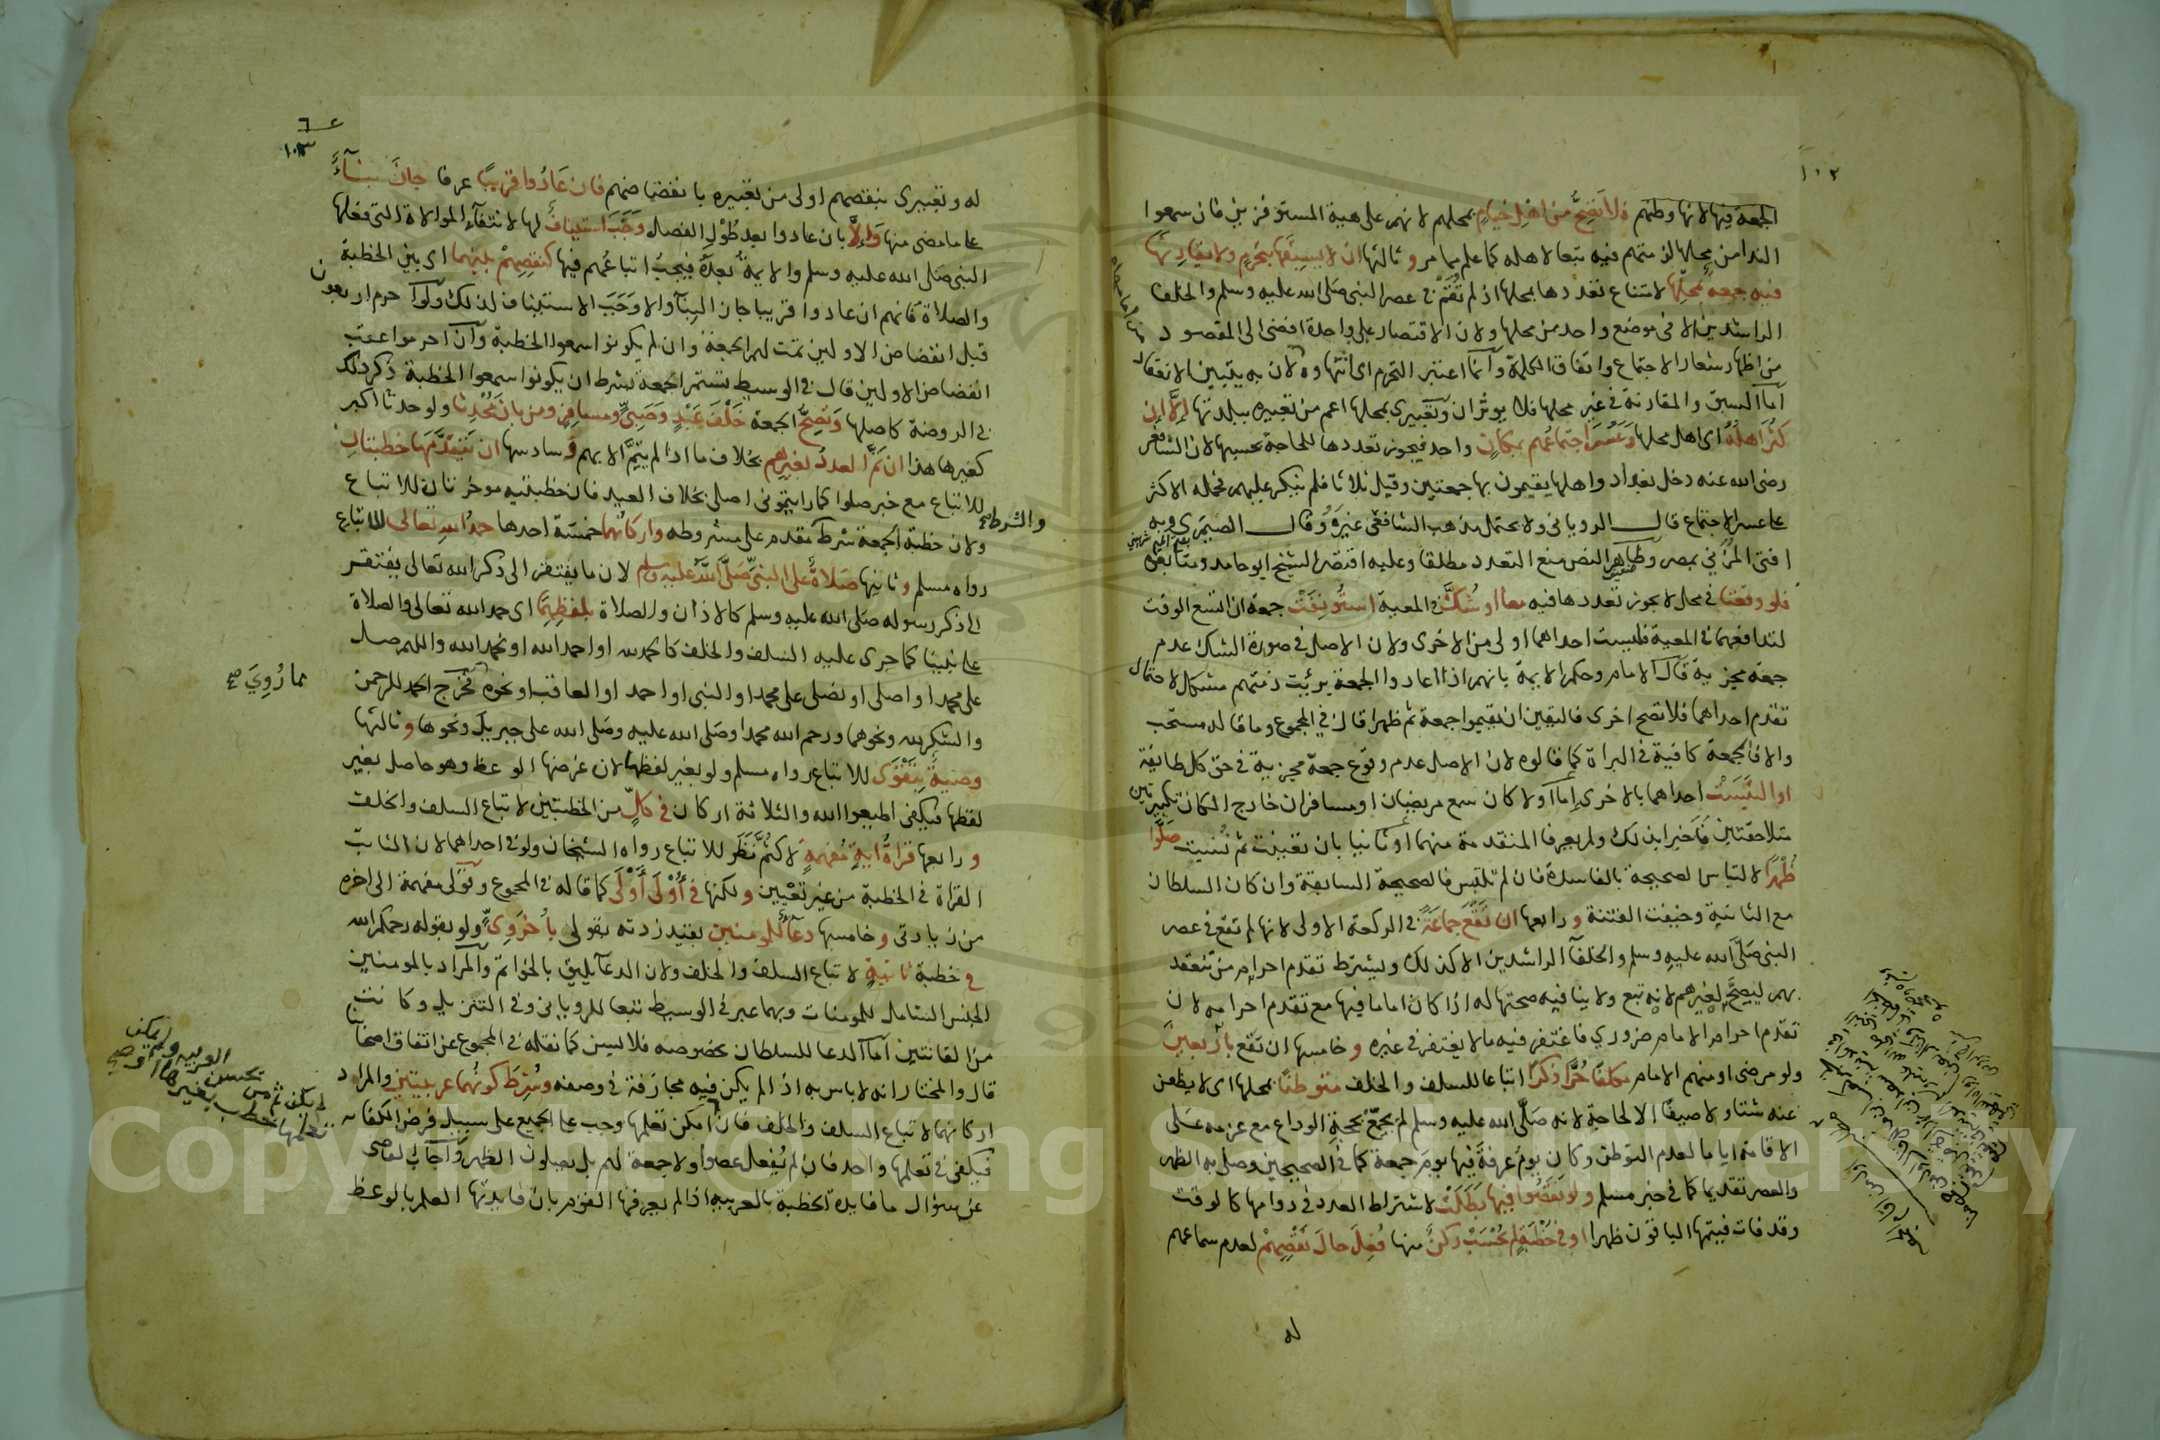 ١٠٢
الجمعة فيها لانها وطنهم فلا تصح من اهل خيام بمحلهم لانهم على هيئة المستوفزين فان سمعوا
الندا من محلها لزمتهم فيه تبعا لاهله كما علم مما مر وثالثها ان لا يسبقها بتحرم ولا يقارنها
فيه جمعة بمحلها لامتناع تعددها بمحلها اذ لم تقم في عصر النبي صلى الله عليه وسلم والخلفا
الراشدين الا في موضع واحد من محلها ولان الاقتصار على واحدة افضى الى المقصود
من اظهار شعار الاجتماع واتفاق الكلمة وانما اعتبر التحرم اى انتهاوه لان به يتبين الانعقاد
اما السبق والمقارنة في غير محلها فلا يوثران وتعبيرى بمحلها اعم من تعبيره ببلدتها الا ان
كثر اهله اى اهل محلها وعسر اجتماعهم بمكان واحد فيجوز تعددها للحاجة بحسبها لان الشافعي
رضى الله عنه دخل بغداد واهلها يقيمون بها جمعتين وقيل ثلاثا فلم ينكر عليهم فحمله الاكثر
على عسر الاجتماع قال الرويانى ولا يحتمل مذهب الشافعى غيره وقال الصيمرى وبه
افتى المزني بمصر وظاهر النص منع التعدد مطلقا وعليه اقتصر الشيخ ابو حامد ومتابعوه
فلو وقعتا في محل لا يجوز تعددها فيه معا او شك في المعية استؤنفت جمعة ان اتسع الوقت
لتدافعهما في المعية فليست احداهما اولى من الاخرى ولان الاصل في صورة الشك عدم
جمعة مجزية قال الامام وحكم الايمة بانهم اذا اعادوا الجمعة برئت ذمتهم مشكل لاحتمال
تقدم احداهما فلا تصح اخرى فاليقين ان يقيموا جمعة ثم ظهرا قال في المجموع وما قاله مستحب
والا فالجمعة كافية في البراة كما قالوه لان الاصل عدم وقوع جمعة مجزية في حق كل طائفة
او التبست احداهما بالاخرى اما اولا كان سمع مريضان او مسافران خارج المكان تكبيرتين
متلاحقتين فاخبرا بذلك ولم يعرفا المتقدمة منهما او ثانيا بان تعينت ثم نسيت صلوا
ظهرا لالتباس الصحيحة بالفاسدة فان لم تلتبس فالصحيحة السابقة وان كان السلطان
مع الثانية وخيفت الفتنة ورابعها ان تقع جماعة في الركعة الاولى لانها لم تقع في عصر
النبى صلى الله عليه وسلم والخلفا الراشدين الا كذلك ويشترط تقدم احرام من تنعقد
بهم ليصح لغيرهم لانه تبع ولا ينافيه صحتها له اذا كان اماما فيها مع تقدم احرامه لان
تقدم احرام الامام ضروري فاغتفر فيه ما لا يغتفر في غيره وخامسها ان تقع باربعين
ولو مرضى او منهم الامام مكلفا حرا ذكرا اتباعا للسلف والخلف متوطنا بمحلها اى لا يظعن
عنه شتا ولا صيفا الا لحاجة لانه صلى الله عليه وسلم لم يجمع بحجة الوداع مع عزمه على
الاقامة اياما لعدم التوطن وكان يوم عرفة فيها يوم جمعة كما في الصحيحين وصلى به الظهر
والعصر تقديما كما في خبر مسلم ولو نقصوا فيها بطلت لاشتراط العدد في دوامها كالوقت
وقد فات فيتمها الباقون ظهرا او في خطبة لم يحسب ركن منها فعل حال نقصهم لعدم سماعهم
له
١٠٣
له وتعبيرى بنقصهم اولى من تعبيره بانفضاضهم فان عادوا قريبا عرفا جاز بناء
على ما مضى منها والا بان عادوا بعد طول الفصل وجب استيناف لها لانتفاء الموالاة التى فعلها
النبى صلى الله عليه وسلم والايمة بعده فيجب اتباعهم فيها كنقصهم بينهما اى بين الخطبة
والصلاة فانهم ان عادوا قريبا جاز البنا والا وجب الاستيناف لذلك ولو احرم اربعون
قبل انفضاض الاولين تمت لهم الجمعة وان لم يكونوا سمعوا الخطبة وان احرموا عقب
انفضاض الاولين قال في الوسيط تستمر الجمعة بشرط ان يكونوا سمعوا الخطبة ذكر ذلك
في الروضة كاصلها وتصح الجمعة خلف عبد وصبى ومسافر ومن بان محدثا ولو حدثا اكبر
كغيرها هذا ان تم العدد بغيرهم بخلاف ما اذا لم يتم الا بهم وسادسها ان تتقدمها خطبتان
للاتباع مع خبر صلوا كما رايتموني اصلى بخلاف العيد فان خطبتيه موخرتان للاتباع
ولان خطبة الجمعة شرط والشرط مقدم على مشروطه واركانهما خمسة احدها حمد الله تعالى للاتباع
رواه مسلم وثانيها صلاة على النبى صلى الله عليه وسلم لان ما يفتقر الى ذكر الله تعالى يفتقر
الى ذكر رسوله صلى الله عليه وسلم كالاذان والصلاة بلفظهما اى حمد الله تعالى والصلاة
على نبينا كما جرى عليه السلف والخلف كالحمد لله او احمد الله او نحمد الله واللهم صل
على محمد او اصلى او نصلى على محمد او النبى او احمد او العاقب او نحوه فخرج الحمد للرحمن
والشكر لله ونحوهما ورحم الله محمدا وصلى الله عليه وصلى الله على جبريل ونحوها وثالثها
وصية بتقوى للاتباع رواه مسلم ولو بغير لفظها لان غرضها الوعظ وهو حاصل بغير
لفظها فيكفى اطيعوا الله والثلاثة اركان في كل من الخطبتين لاتباع السلف والخلف
ورابعها قراءة اية مفهمة لا كثم نظر للاتباع رواه الشيخان ولو في احداهما لان الثابت
القراة في الخطبة من غير تعيين ولكنها في اولى اولى كما قاله في المجموع وقولى مفهمة الى اخره
من زيادتى وخامسها دعاء للمومنين بقيد زدته بقولى باخروى ولو بقوله رحمكم الله
في خطبة ثانية لاتباع السلف والخلف ولان الدعا يليق بالخواتم والمراد بالمومنين
الجنس الشامل للمومنات وبهما عبر في الوسيط تبعا للرويانى وفي التنزيل وكانت
من القانتين اما الدعا للسلطان بخصوصه فلا يسن كما نقله في المجموع عن اتفاق اصحابنا
قال والمختار انه لا باس به اذا لم يكن فيه مجازفة في وصفه وشرط كونهما عربيتين والمراد
اركانهما لاتباع السلف والخلف فان امكن تعلمها وجب على الجميع على سبيل فرض الكفاية
فيكفى في تعلمها واحد فان لم يفعل عصوا ولا جمعة لهم بل يصلون الظهر واجاب القاضى
عن سؤال ما فايدة الخطبة بالعربية اذا لم يعرفها القوم بان فايدتها العلم بالوعظ
مما رُوِيَ صح